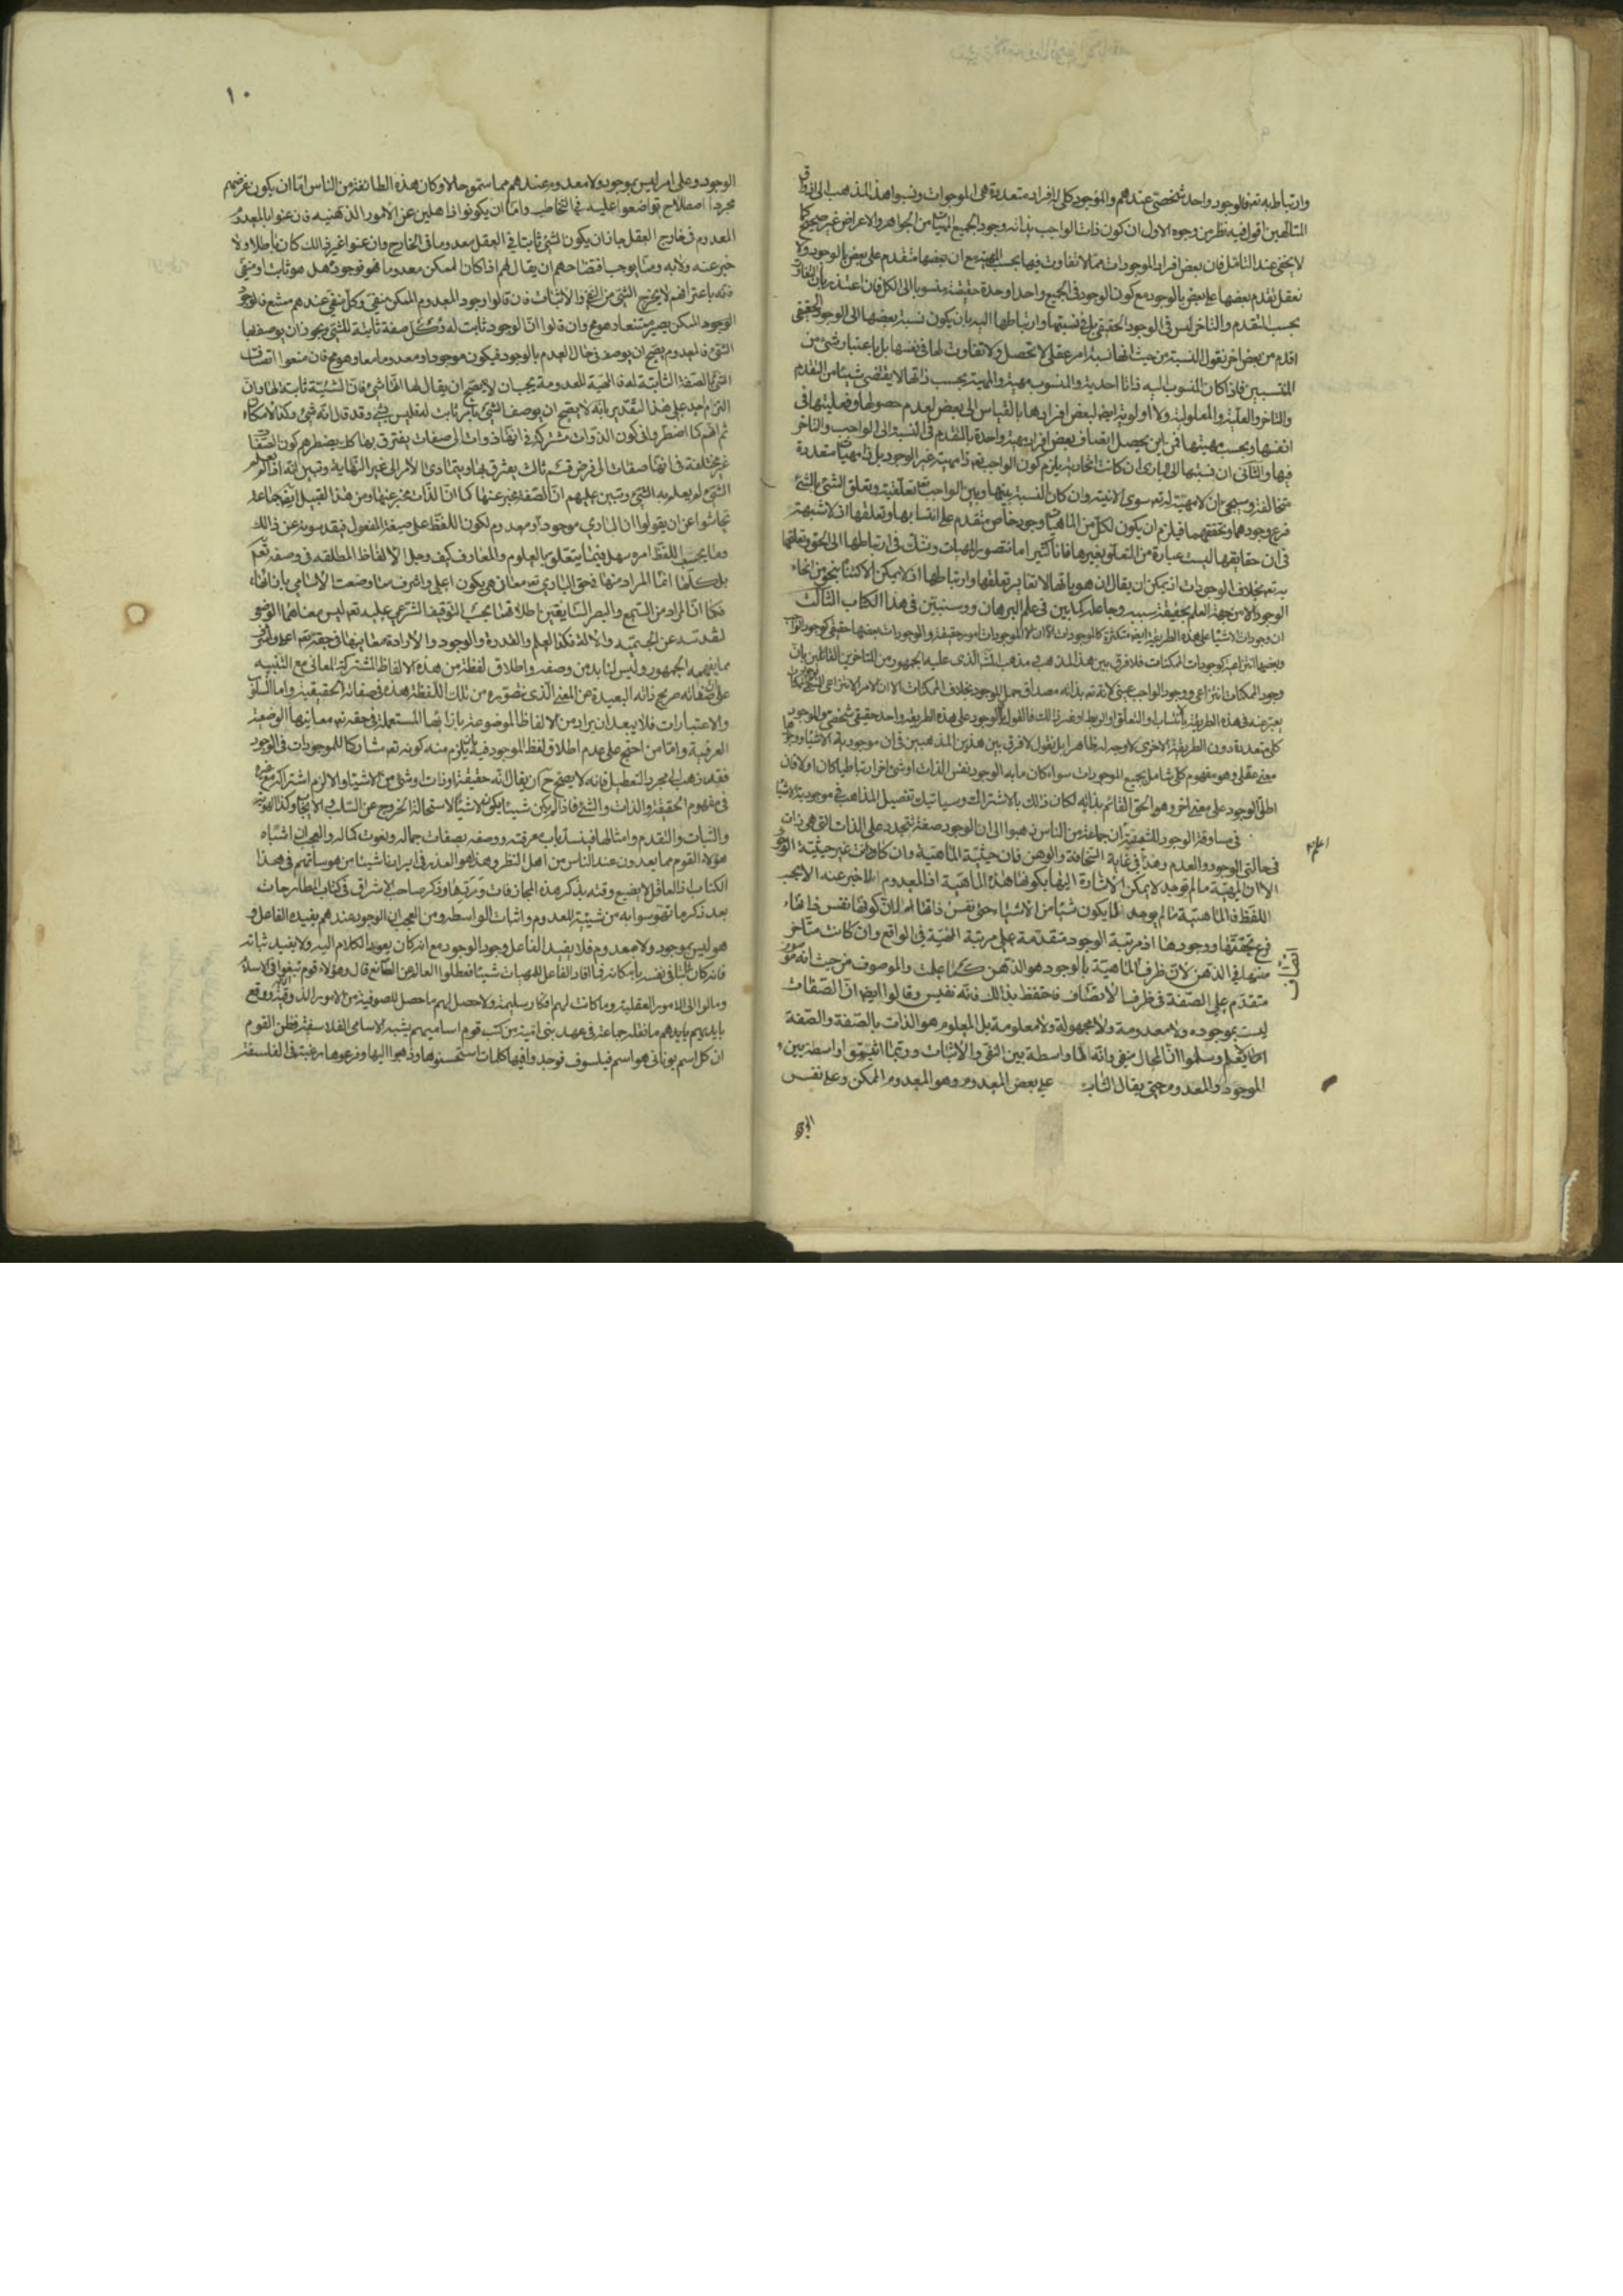 وارتباطه به تعالى فالوجود واحد شخصى عندهم والموجود كلى له افراد متعددة هى الموجودات ونسبوا هذا المذهب الى اذواق
المتألهين اقول فيه نظر من وجوه الاول ان كون ذات الواجب بذاته وجود الجميع المهيات من الجواهر والاعراض غير صحيح كما
لا يخفى عند التأمل فان بعض افراد الموجودات مما لا تفاوت فيها بحسب المهية مع ان بعضها متقدم على بعض بالوجود ولا
نعقل تقدم بعضها على بعض بالوجود مع كون الوجود فى الجميع واحدا وحدة حقيقية منسوبا الى الكل فان اعتذر بان التفاوت
بحسب التقدم والتاخر ليس فى الوجود الحقيقى بل فى نسبتها وارتباطها اليه بان يكون نسبة بعضها الى الوجود الحقيقى
اقدم من بعض اخر نقول النسبة من حيث انها نسبة امر عقلى لا تحصل ولا تفاوت لها فى نفسها بل باعتبار شىء من
المنتسبين فاذا كان المنسوب اليه ذاتا احدية والمنسوب مهية والمهية بحسب ذاتها لا يقتضى شيئا من التقدم
والتاخر والعلية والمعلولية ولا اولوية ايضا لبعض افرادها بالقياس الى بعض لعدم حصولها وفعليتها فى
انفسها وبحسب مهيتها فمن اين يحصل امتياز بعض افراد مهية واحدة بالتقدم فى النسبة الى الواجب والتاخر
فيها والثانى ان نسبتها الى البارى ان كانت اتحادية يلزم كون الواجب تعالى ذا مهية غير الوجود بل ذا مهيات متعددة
متخالفة وسيجئ ان لا مهية له تعالى سوى الانية وان كان النسبة بينها وبين الواجب تعالى تعلقية وتعلق الشئ بالشئ
فرع وجودهما وتحققهما فيلزم ان يكون لكل من الماهيات وجود خاص متقدم على انتسابها وتعلقها اذ لا شبهة
فى ان حقايقها ليست عبارة عن التعلق بغيرها فانا كثيرا ما نتصور المهيات ونشك فى ارتباطها الى الحق وتعلقها
به تعالى بخلاف الوجودات اذ يمكن ان يقال ان هوياتها لا تغاير تعلقها وارتباطها اذ لا يمكن الاكتناه بنحو من انحاء
الوجود الا من جهة العلم بحقيقة سببه وجاعله كما بين فى علم البرهان وسنبين فى هذا الكتاب الثالث
ان وجودات الاشياء على هذه الطريقة ايضا متكثرة كالموجودات الا ان الموجودات امور حقيقة والوجودات بعضها حقيقى كوجود الواجب
وبعضها انتزاعى كوجودات الممكنات فلا فرق بين هذا المذهب ومذهب المشهور الذى عليه الجمهور من المتاخرين القائلين بان
وجود الممكنات انتزاعى ووجود الواجب عينى لانه تعالى بذاته مصداق حمل الموجود بخلاف الممكنات الا ان الامر الانتزاعى المسمى بوجود الممكنات
يعبر عنه فى هذه الطريقة بالانتساب والتعلق او الربط او غير ذلك فالقول بان الوجود على هذه الطريقة واحد حقيقى شخصى والموجود
كلى متعدد دون الطريقة الاخرى لا وجه له ظاهرا بل نقول لا فرق بين هذين المذهبين فى ان موجودية الاشياء ووجودها
معنى عقلى ومفهوم كلى شامل لجميع الموجودات سواء كان ما به الوجود نفس الذات او شئ اخر ارتباطيا كان او لا فان
اطلق الوجود على معنى اخر وهو الحق القائم بذاته لكان ذلك بالاشتراك وسياتيك تفصيل المذاهب فى موجودية الاشياء
فى مساوقة الوجود للشيئية ان جماعة من الناس ذهبوا الى ان الوجود صفة تتجدد على الذات التى هى ذات
فى حالتى الوجود والعدم وهذا فى غاية السخافة والوهن فان حيثية الماهية وان كانت غير حيثية الوجود
الا ان المهية ما لم توجد لا يمكن الاشارة اليها بكونها هذه الماهية اذ المعدوم لا يخبر عنه الا بحسب
اللفظ فالماهية ما لم يوجد لا يكون شيئا من الاشياء حتى نفس ذاتها لان كونها نفس ذاتها
فرع تحققها ووجودها اذ مرتبة الوجود متقدمة على مرتبة المهية فى الواقع وان كانت متاخر
عنها فى الذهن لان ظرف اتصاف الماهية بالوجود هو الذهن كما علمت والموصوف من حيث انه موصوف
متقدم على الصفة فى ظرف الاتصاف فاحتفظ بذلك فانه نفيس وقالوا ايضا ان الصفات
ليست موجودة ولا معدومة ولا مجهولة ولا معلومة بل المعلوم هو الذات بالصفة والصفة
لا يعلم وسلموا ان المحال منفى وانه لا واسطة بين النفى والاثبات وربما اثبتوا واسطة بين
الموجود والمعدوم حتى يقال الثابت على بعض المعدوم وهو المعدوم الممكن وعلى نفس
اعلم
١٠
الوجود وعلى امر ليس بموجود ولا معدوم عندهم مما سموه حالا وكان هذه الطائفة من الناس اما ان يكون غرضهم
مجرد اصطلاح تواضعوا عليه فى التخاطب واما ان يكونوا ذاهلين عن الامور الذهنية فان عنوا بالمعدوم
المعدوم فى خارج العقل جاز ان يكون الشئ ثابتا فى العقل معدوما فى الخارج وان عنوا غير ذلك كان باطلا ولا
خبر عنه ولا به ومما يوجب افتضاحهم ان يقال لهم اذا كان الممكن معدوما فوجوده هل هو ثابت او منفى
فانه باعترافهم لا يخرج الشئ من النفى والاثبات فان قالوا وجود المعدوم الممكن منفى وكل منفى عندهم ممتنع فالوجود
الممكن يصير ممتنعا وهو مح وان قالوا ان الوجود ثابت له وكل صفة ثابتة للشئ يجوز ان يوصف بها
الشئ فالمعدوم يصح ان يوصف فى حال العدم بالوجود فيكون موجودا ومعدوما معا وهو مح فان منعوا اتصاف
الشئ بالصفة الثابتة له فالمهية المعدومة يجب ان لا يصح ان يقال لها انها شئ فان الشيئية ثابتة لها وان
التزم احد على هذا التقدير بانه لا يصح ان يوصف الشئ بامر ثابت له فليس بشئ وقد قال انه شئ وكذا الامكان
ثم انهم كما اضطروا فى كون الذوات مشتركة فى انها ذوات الى صفات يفترق بها كل يضطرهم كون الصفات
غير مختلفة فى انها صفات الى فرض قسم ثالث يفترق بها ويتمادى الامر الى غير النهاية وتبين انه اذا لم يعلم
الشئ لم يعلم به الشئ وتبين عليهم ان الصفة مخبر عنها كما ان الذات مخبر عنها ومن هذا القبيل ايضا جماعة
تحاشوا عن ان يقولوا ان البارى موجود او معدوم لكون اللفظ على صيغة المفعول فيقدسونه عن ذلك
وما يحسب اللفظ امره سهل فيما يتعلق بالعلوم والمعارف كيف وجل الالفاظ المطلقة فى وصفه تعالى
بل كلها انما المراد منها فى حق البارى تعالى معان هى يكون اعلى واشرف مما وضعت الاسامى بازائها
فكما ان المراد من السمع والبصر السائغين اطلاقهما بحسب التوقيف الشرعى عليه تعالى ليس معناهما الوضعى
لتقدسه عن الجسمية والالة فكذا العلم والقدرة والوجود والارادة معانيها فى حقه تعالى اعلى واشرف
مما يفهمه الجمهور وليس لنا بد من وصفه واطلاق لفظة من هذه الالفاظ المشتركة المعانى مع التنبيه
على ان صفاته صريح ذاته البعيدة عن المعنى الذى نتصوره من تلك اللفظة هذا فى صفاته الحقيقية واما السلوب
والاعتبارات فلا يبعد ان يراد من الالفاظ الموضوعة بازائها المستعملة فى حقه تعالى معانيها الوضعية
العرفية واما من احتج على عدم اطلاق لفظ الموجود فيه بانه يلزم منه كونه تعالى مشاركا للموجودات فى الوجود
فقد ذهب الى مجرد التعطيل فانه لا يصح ح ان يقال انه حقيقة او ذات او شئ من الاشياء والا لزم اشتراكه مع غيره
فى مفهوم الحقيقة والذات والشئ فاذا لم يكن شيئا يكون لا شيئا لاستحالة الخروج عن السلب والايجاب وكذا الهوية
والثبات والتقدم وامثالها فينسد باب معرفته ووصفه بصفات جماله ونعوت كماله والعجب ان اشباه
هؤلاء القوم مما يعدون عند الناس من اهل النظر وهذا هو العذر فى ايرادنا شيئا من هوساتهم فى هذا
الكتاب اذ العاقل لا يضيع وقته بذكر هذه المجازفات وردها وذكر صاحب الاشراق فى كتاب المطارحات
بعد ذكر ما تهوسوا به من شيئية المعدوم واثبات الواسطه ومن العجب ان الوجود عندهم يفيده الفاعل و
هو ليس بموجود ولا معدوم فلا يفيد الفاعل وجود الوجود مع انه كان يعود الكلام اليه ولا يفيد ثباته
فانه كان ثابتا فى نفسه بامكانه فما افاد الفاعل للمهيات شيئا فعطلوا العالم عن الصانع قال وهؤلاء قوم نبغوا فى الاسلام
ومالوا الى الامور العقلية وما كانت لهم افكار سليمة ولا حصل لهم ما حصل للصوفية من الامور الذوقية ووقع
بايديهم ما نقله جماعة فى عهد بنى امية من كتب قوم اساميهم يشبه الاسامى الفلاسفة فظن القوم
ان كل اسم يونانى هو اسم فيلسوف فوجدوا فيها كلمات استحسنوها وذهبوا اليها وفرعوها رغبة فى الفلسفة